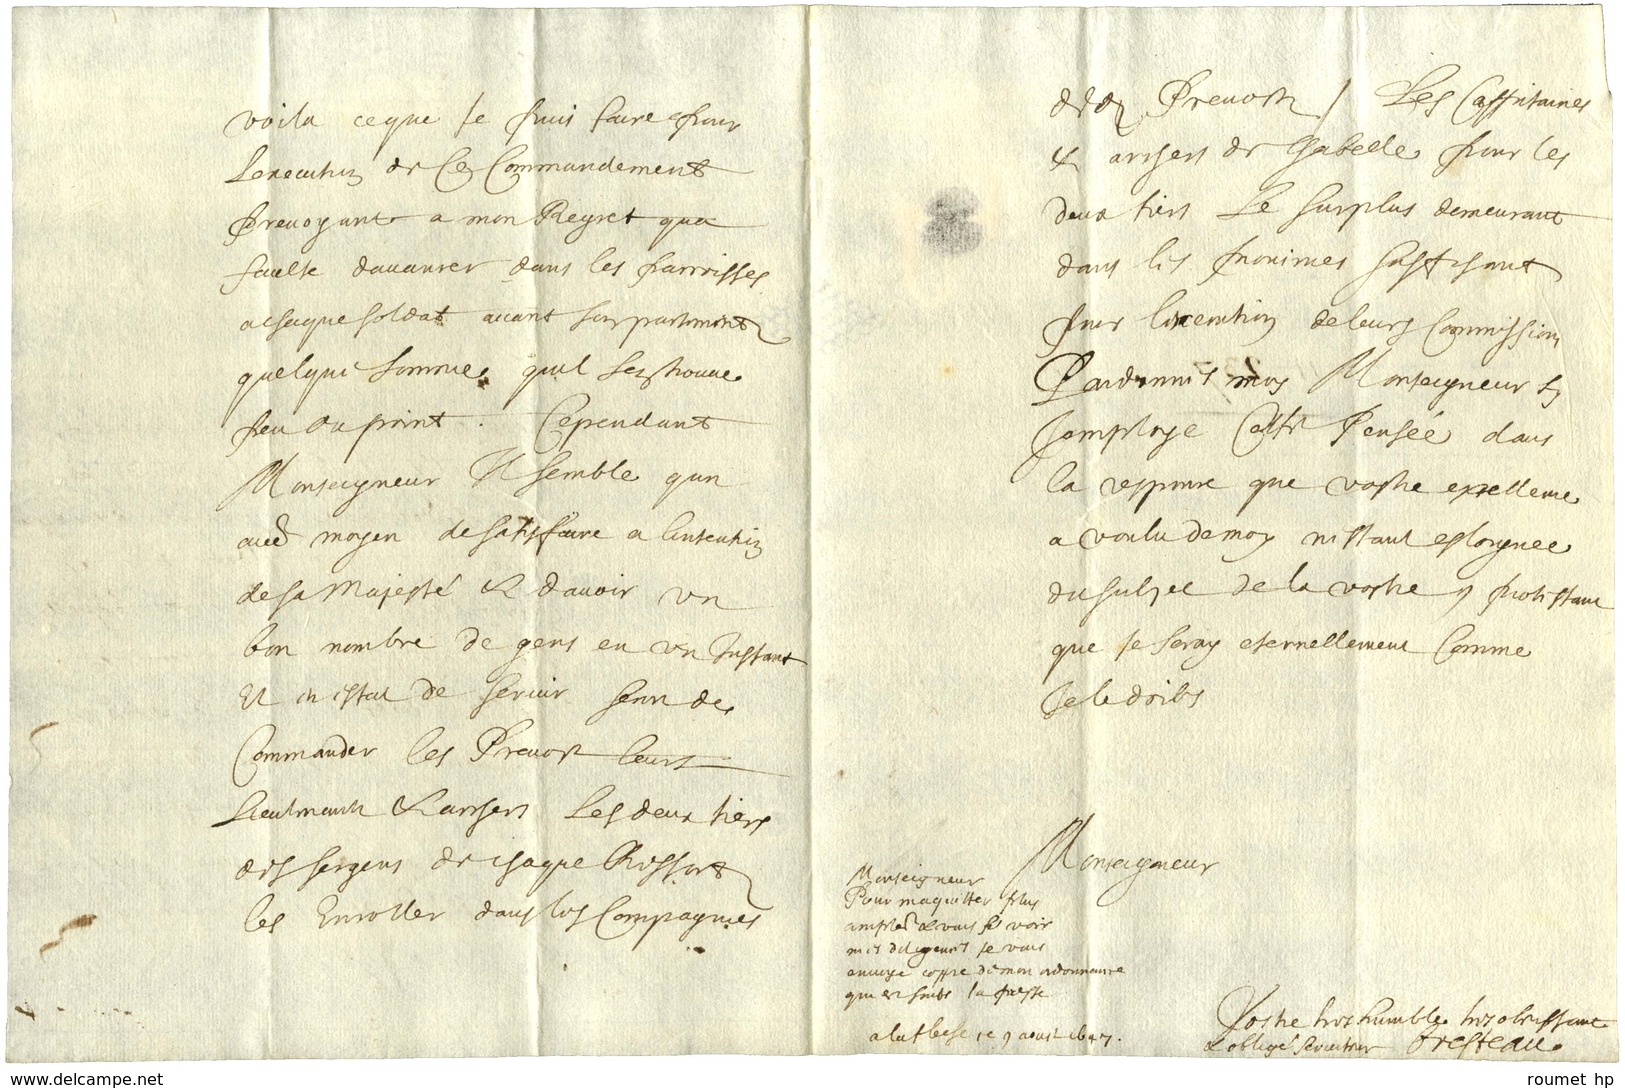 voila ceque Je puis faire pour
Lexecution de Ce Commandement
Prevoyant a mon Regret qua
faulte davancer dans les parroisses
a chaque soldat avant son partement
quelque somme quil sen trouve
peu ou point. Cependant
Monseigneur Il semble qun
aued moyen de satisfaire a lintention
de sa Majesté & davoir un
bon nombre de gens en un Instant
Et en estat de servir seroit de
Commander les Prevost leurs
Lieutenants & archers Les deux tiers
des sergens de chaque Ressort
les Enroller dans les Compagnies
desd Prevostz / Les Cappitaines
& archers de Gabelle pour les
deux tiers Le surplus demeurant
dans les provinces suffisant
pour lexecution de leurs Commission
Pardonnes moy Monseigneur sy
Jemploye Cette Pensée dans
la response que vostre excellence
a voulu de moy nestant esloignee
du subjec de la vostre y protestant
que Je seray eternellement Comme
Je le doibs
Monseigneur
Monseigneur
Pour maquitter plus
&vous fe voir
mes diligences Je vous
envoye coppie de mon ordonnance
que en suitte la presse
ce 9 aoust 1647.
Vostre tres humble tres obeissant
& obligé serviteur Tresteau
www.delcampe.net
roumet hp